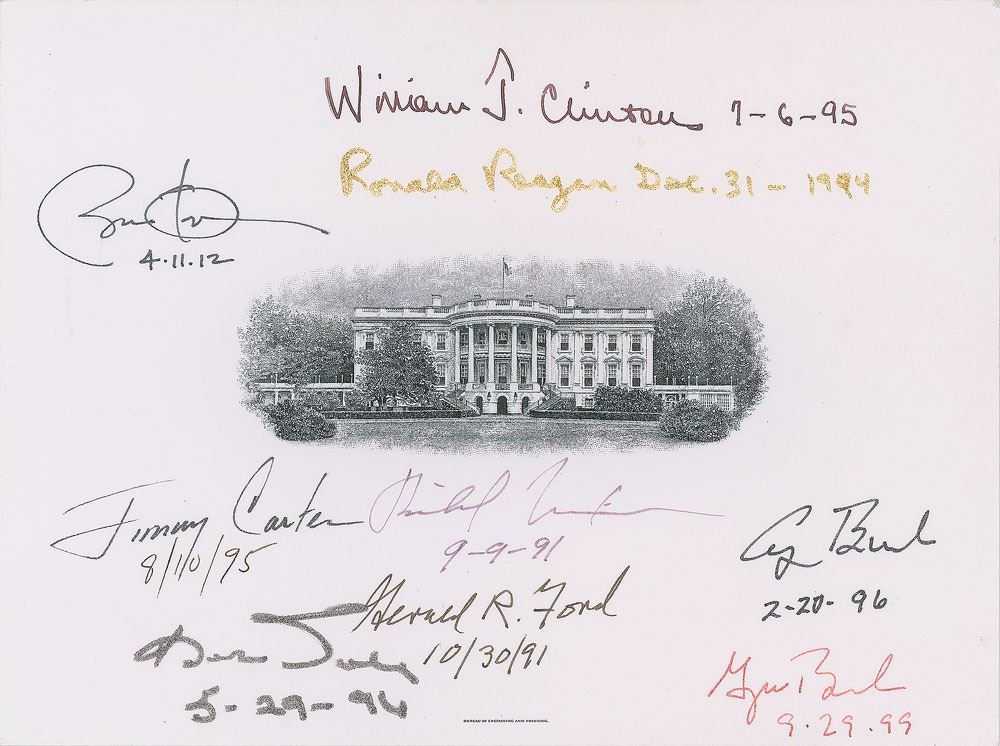 William J. Clinton 7-6-95
Ronald Reagan Dec. 31 - 1994
4.11.12
Jimmy Carter
8/10/95
9-9-91
Bush
2-20-96
Gerald R. Ford
10/30/91
Bush
9.29.99
BUREAU OF ENGRAVING AND PRINTING.